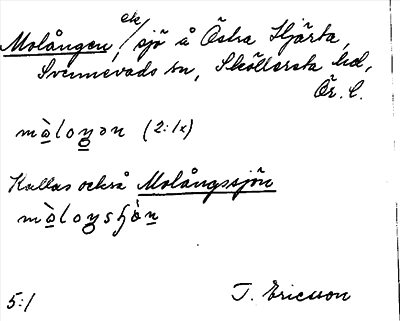 ek
Molången, / sjö å Östra Hjärta,
Svennevads sn, Sköllersta hd,
Ör. l.
màloŋən (2:1x)
Kallas också Molångssjön
màloŋsʃö̀n
5:1 T. Ericsson